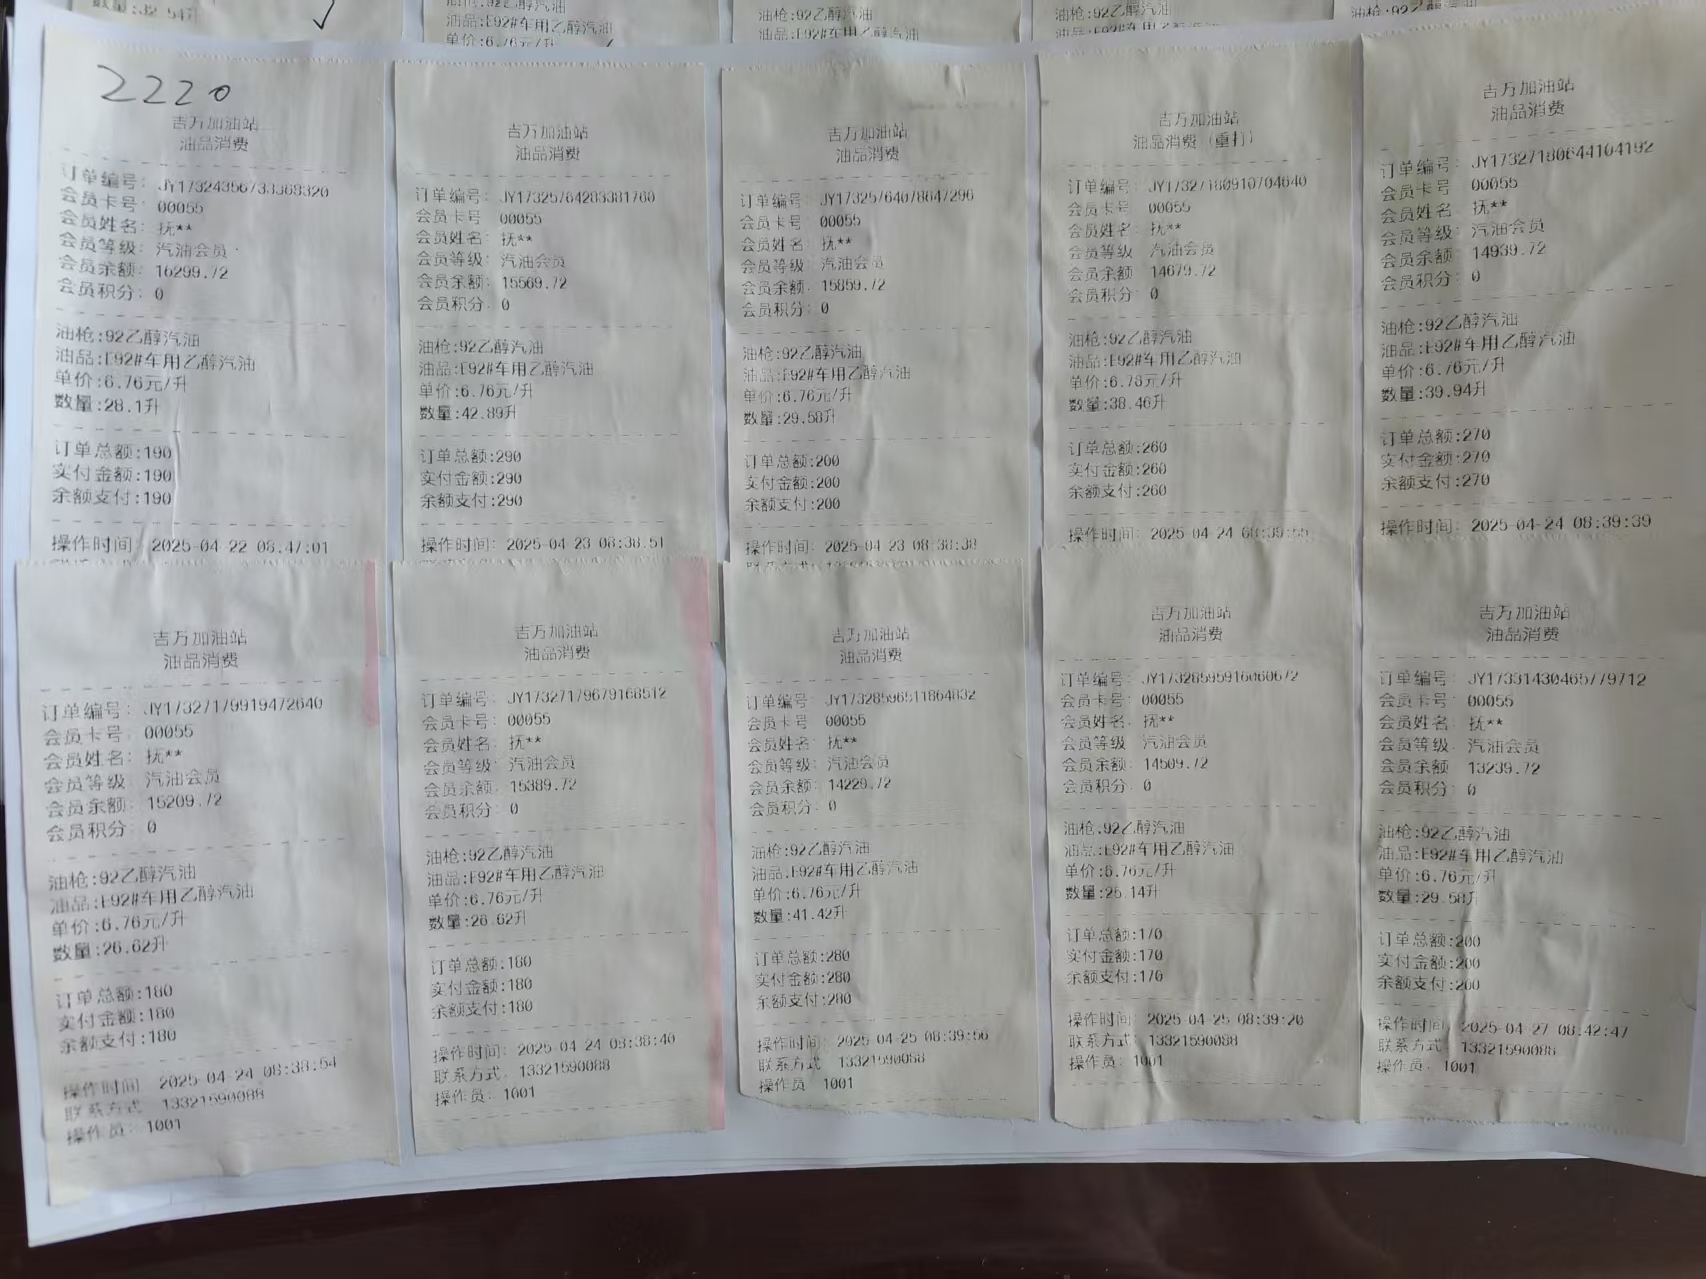 油枪:92乙醇汽油
油品:E92#车用乙醇汽油
单价:6.76元/升
油枪:92乙醇汽油
油枪:92乙醇汽油
2220
吉万加油站
油品消费
订单编号: JY17324356733368320
会员卡号: 00055
会员姓名: 抚**
会员等级: 汽油会员
会员余额: 16299.72
会员积分: 0
油枪:92乙醇汽油
油品:E92#车用乙醇汽油
单价:6.76元/升
数量:28.1升
订单总额:190
实付金额:190
余额支付:190
操作时间: 2025-04-22 08:47:01
吉万加油站
油品消费
订单编号: JY17325764283381760
会员卡号 00055
会员姓名: 抚**
会员等级: 汽油会员
会员余额: 15569.72
会员积分: 0
油枪:92乙醇汽油
油品:E92#车用乙醇汽油
单价:6.76元/升
数量:42.89升
订单总额:290
实付金额:290
余额支付:290
操作时间: 2025-04-23 08:38:51
吉万加油站
油品消费
订单编号: JY17325764078647296
会员卡号: 00055
会员姓名: 抚**
会员等级: 汽油会员
会员余额: 15859.72
会员积分: 0
油枪:92乙醇汽油
油品:E92#车用乙醇汽油
单价:6.76元/升
数量:29.58升
订单总额:200
实付金额:200
余额支付:200
操作时间: 2025-04-23 08:38:38
吉万加油站
油品消费 (重打)
订单编号: JY17327180910704640
会员卡号: 00055
会员姓名: 抚**
会员等级 汽油会员
会员余额 14679.72
会员积分: 0
油枪:92乙醇汽油
油品:E92#车用乙醇汽油
单价:6.76元/升
数量:38.46升
订单总额:260
实付金额:260
余额支付:260
操作时间: 2025-04-24 08:39:55
吉万加油站
油品消费
订单编号: JY17327180644104192
会员卡号: 00055
会员姓名 抚**
会员等级: 汽油会员
会员余额: 14939.72
会员积分: 0
油枪:92乙醇汽油
油品:E92#车用乙醇汽油
单价:6.76元/升
数量:39.94升
订单总额:270
实付金额:270
余额支付:270
操作时间: 2025-04-24 08:39:39
吉万加油站
油品消费
订单编号: JY17327179919472640
会员卡号: 00055
会员姓名: 抚**
会员等级 汽油会员
会员余额: 15209.72
会员积分: 0
油枪:92乙醇汽油
油品:E92#车用乙醇汽油
单价:6.76元/升
数量:26.62升
订单总额:180
实付金额:180
余额支付:180
操作时间 2025-04-24 08:38:54
联系方式 13321590088
操作员: 1001
吉万加油站
油品消费
订单编号: JY17327179679168512
会员卡号: 00055
会员姓名: 抚**
会员等级: 汽油会员
会员余额: 15389.72
会员积分: 0
油枪:92乙醇汽油
油品:E92#车用乙醇汽油
单价:6.76元/升
数量:26.62升
订单总额:180
实付金额:180
余额支付:180
操作时间: 2025-04-24 08:38:40
联系方式: 13321590088
操作员: 1001
吉万加油站
油品消费
订单编号: JY17328596511864832
会员卡号 00055
会员姓名: 抚**
会员等级: 汽油会员
会员余额: 14229.72
会员积分: 0
油枪:92乙醇汽油
油品:E92#车用乙醇汽油
单价:6.76元/升
数量:41.42升
订单总额:280
实付金额:280
余额支付:280
操作时间: 2025-04-25 08:39:56
联系方式 13321590088
操作员 1001
吉万加油站
油品消费
订单编号: JY17328595916060672
会员卡号: 00055
会员姓名: 抚**
会员等级 汽油会员
会员余额: 14509.72
会员积分: 0
油枪:92乙醇汽油
油品:E92#车用乙醇汽油
单价:6.76元/升
数量:25.14升
订单总额:170
实付金额:170
余额支付:170
操作时间: 2025-04-25 08:39:20
联系方式: 13321590088
操作员: 1001
吉万加油站
油品消费
订单编号: JY17331430465779712
会员卡号: 00055
会员姓名: 抚**
会员等级: 汽油会员
会员余额 13239.72
会员积分: 0
油枪:92乙醇汽油
油品:E92#车用乙醇汽油
单价:6.76元/升
数量:29.58升
订单总额:200
实付金额:200
余额支付:200
操作时间: 2025-04-27 08:42:47
联系方式: 13321590088
操作员: 1001